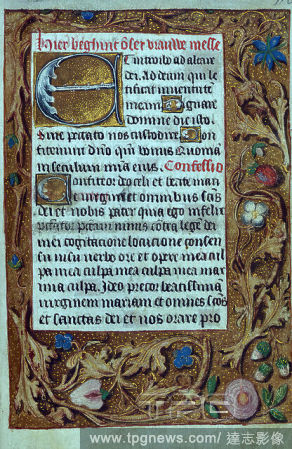 Hier beghint õser vrauwe messe
Et introibo ad altare
dei. Ad deum qui le
tificat iuventutē
meam. Dignare
domine die isto
Sine peccato nos custodire. Con
fitemini dño qm̄ bonus Quoniā
in seculum mīa eius. Confessio
Confiteor deo celi et beate marie
virgini et omnibus scīs
dei et nobis pater quia ego infelix
peccator peccaui nimis cōtra legē dei
mei cogitacione locucione consen
su visu verbo ore et opere mea cul
pa mea culpa mea culpa mea max
ima culpa. Ideo precor beatissimā
virginem mariam et omnes scōs
et sanctas dei et nos orare pro
TPG
www.tpgnews.com / 達志影像